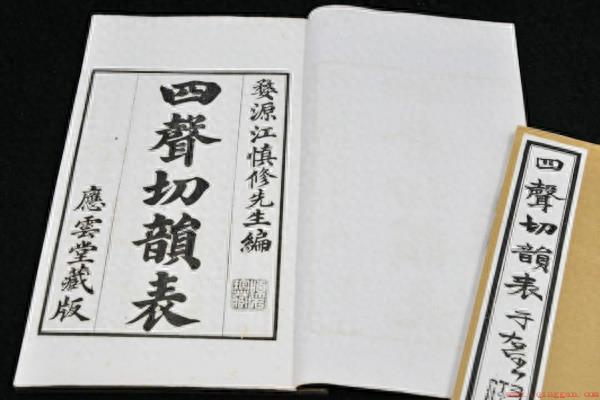 婺源江慎修先生編
四聲切韻表
應雲堂藏版
四聲切韻表